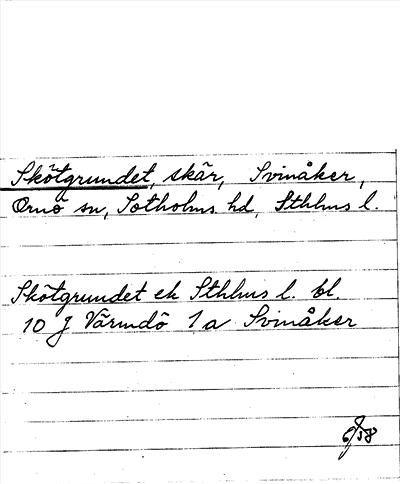 Skötgrundet, skär, Svinåker,
Ornö sn, Sotholms hd, Sthlms l.
Skötgrundet ek Sthlms l. bl.
10 J Värmdö 1a Svinåker